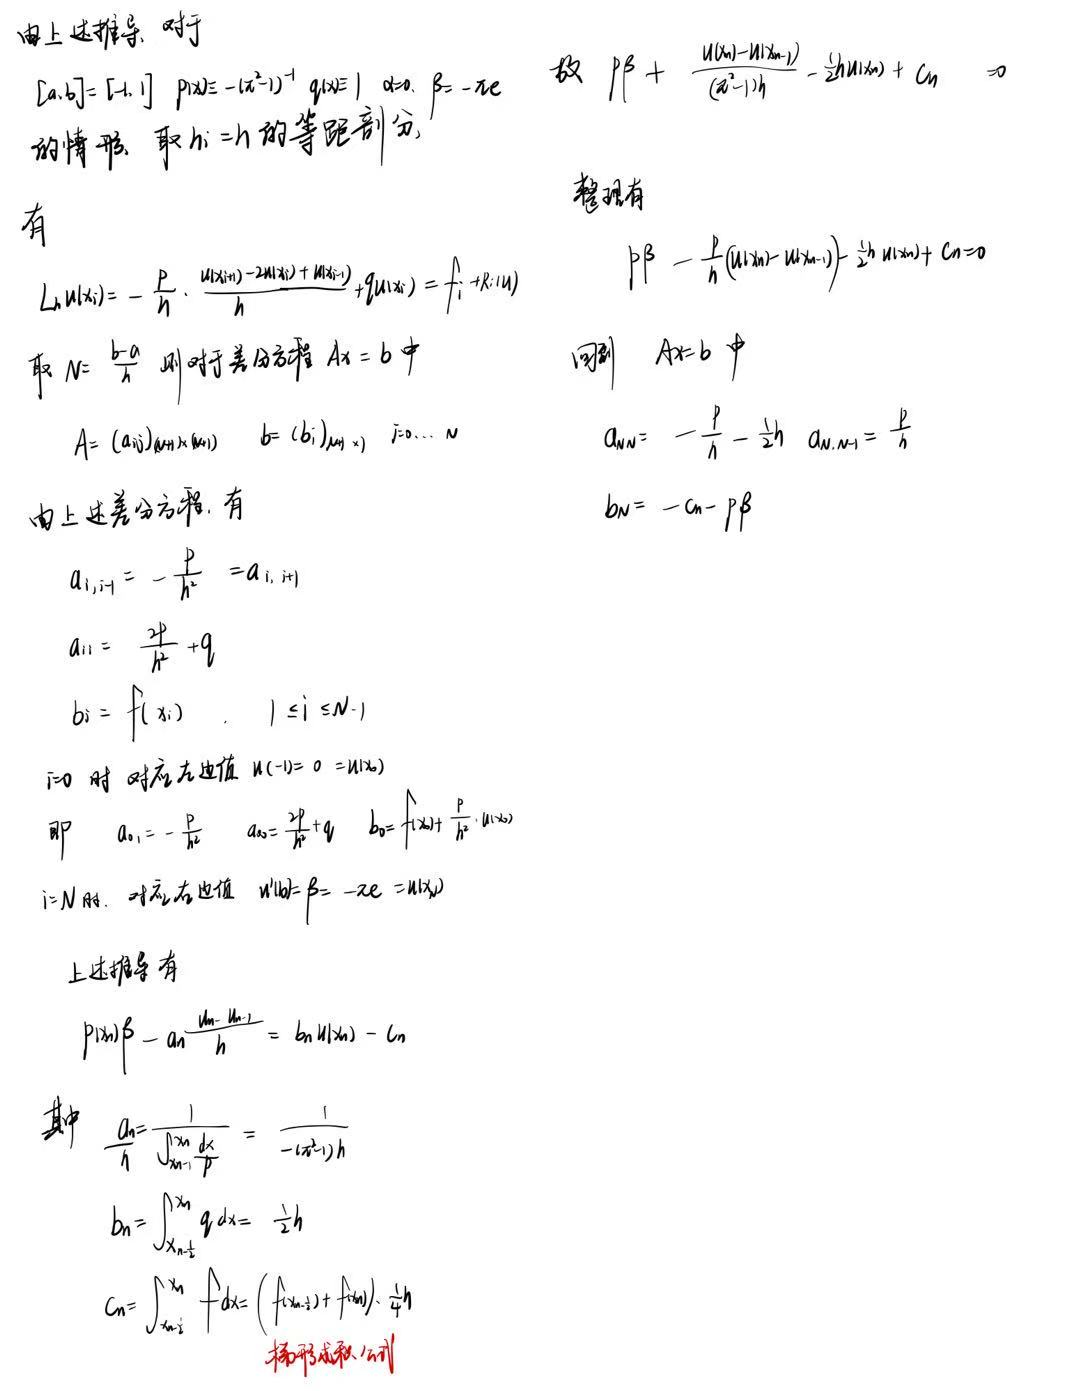 由上述推导, 对于
[a,b]=[-1,1] p(x)≡-(π²-1)⁻¹ q(x)≡1 α=0. β=-πe
的情形, 取hᵢ=h的等距剖分,
有
Lₕu(xᵢ)= - p/h · (u(xᵢ₊₁)-2u(xᵢ)+u(xᵢ₋₁))/h + qu(xᵢ) = fᵢ + Rᵢ(u)
取 N= (b-a)/h 则对于差分方程 Ax=b 中
A=(aᵢⱼ)(N+1)×(N+1) b=(bᵢ)N+1×1 i=0...N
由上述差分方程, 有
aᵢ,ᵢ₋₁ = - p/h² = aᵢ,ᵢ₊₁
aᵢᵢ = 2p/h² + q
bᵢ = f(xᵢ) , 1≤i≤N-1
i=0 时 对应左边值 u(-1)=0=u(x₀)
即 a₀₁= - p/h² a₀₀= 2p/h² + q b₀= f(x₀)+ p/h² · u(x₀)
i=N时. 对应右边值 u'(b)=β= -πe =u(x_N)
上述推导有
p(xₙ)β - aₙ (uₙ-uₙ₋₁)/h = bₙu(xₙ) - cₙ
其中 aₙ/h = 1/∫_{xₙ₋₁}^{xₙ} dx/p = 1/(-(π²-1)h)
bₙ= ∫_{x_{n-½}}^{xₙ} q dx = ½h
cₙ= ∫_{x_{n-½}}^{xₙ} f dx = (f(x_{n-½})+f(xₙ)) · ¼h
梯形求积公式
故 pβ + (u(xₙ)-u(xₙ₋₁))/((π²-1)h) - ½hu(xₙ) + cₙ =0
整理有
pβ - p/h (u(xₙ)-u(xₙ₋₁)) - ½h u(xₙ) + cₙ=0
回到 Ax=b 中
a_{NN}= - p/h - ½h a_{N,N-1}= p/h
b_N= -cₙ-pβ